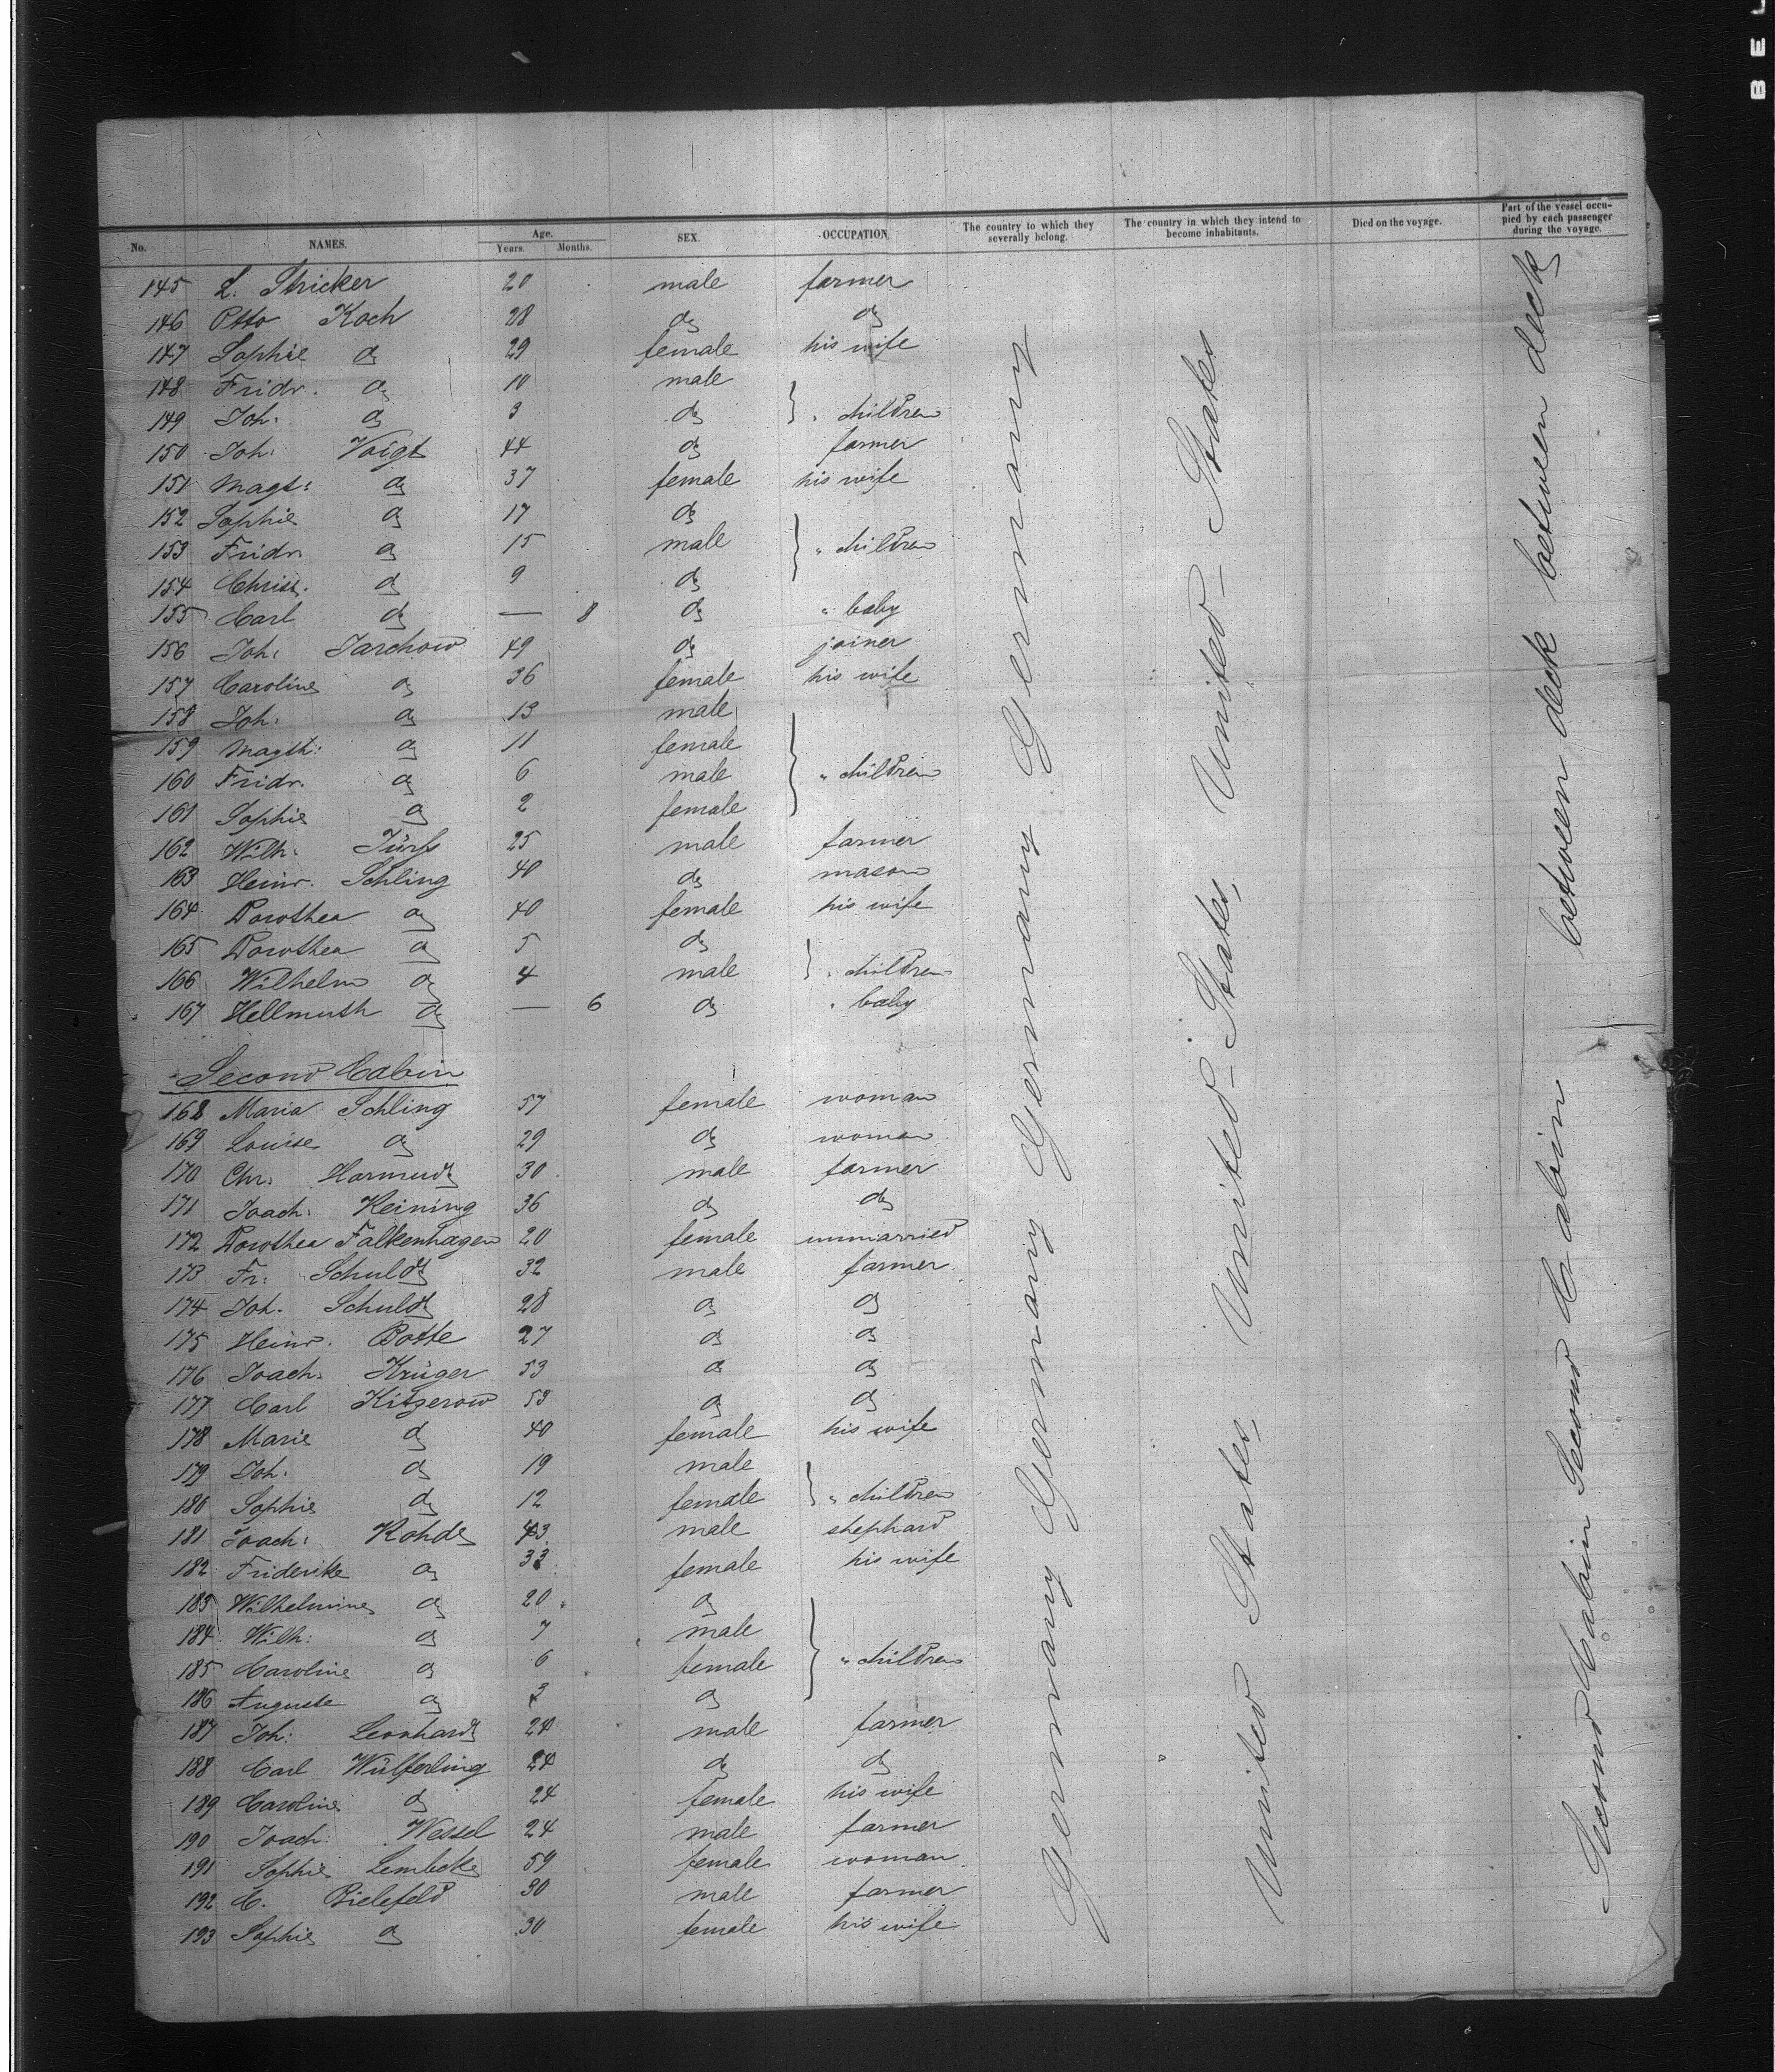 BEL
No. NAMES. Age. Years. Months. SEX. OCCUPATION. The country to which they severally belong. The country in which they intend to become inhabitants. Died on the voyage. Part of the vessel occupied by each passenger during the voyage.
145 L. Stricker 20 male farmer
146 Otto Koch 28 do do
147 Sophie do 29 female his wife
148 Fridr. do 10 male
149 Joh: do 3 do " children
150 Joh: Voigt 44 do farmer
151 Magt: do 37 female his wife
152 Sophie do 17 do
153 Fridr do 15 male " children
154 Christ. do 9 do
155 Carl do — 8 do " baby
156 Joh: Jarchow 49 do joiner
157 Caroline do 36 female his wife
158 Joh: do 13 male
159 Magth: do 11 female
160 Fridr. do 6 male " children
161 Sophie do 2 female
162 Wilh: Jürß 25 male farmer
163 Heinr. Schling 40 do mason
164 Dorothea do 40 female his wife
165 Dorothea do 5 do
166 Wilhelm do 4 male " children
167 Hellmuth do — 6 do " baby
Second Cabin
168 Maria Schling 57 female woman
169 Louise do 29 do woman
170 Chr: Harmudt 30 male farmer
171 Joach: Heining 36 do do
172 Dorothea Falkenhagen 20 female unmarried
173 Fr: Schuldt 32 male farmer
174 Joh. Schuldt 28 do do
175 Heinr. Botte 27 do do
176 Joach: Krüger 53 do do
177 Carl Kitzerow 53 do do
178 Marie do 40 female his wife
179 Joh: do 19 male
180 Sophie do 12 female " children
181 Joach: Rohde 43 male shephard
182 Friderike do 33 female his wife
183 Wilhelmine do 20 do
184 Wilh: do 7 male
185 Caroline do 6 female " children
186 Auguste do 3 do
187 Joh: Leonhardt 24 male farmer
188 Carl Wülferling 24 do do
189 Caroline do 24 female his wife
190 Joach: Wessel 24 male farmer
191 Sophie Lembcke 59 female woman
192 C. Bielefeld 30 male farmer
193 Sophie do 30 female his wife
Germany Germany Germany Germany Germany Germany
United States United-States, United-States, United-States
Second Cabin Second Cabin between deck between deck